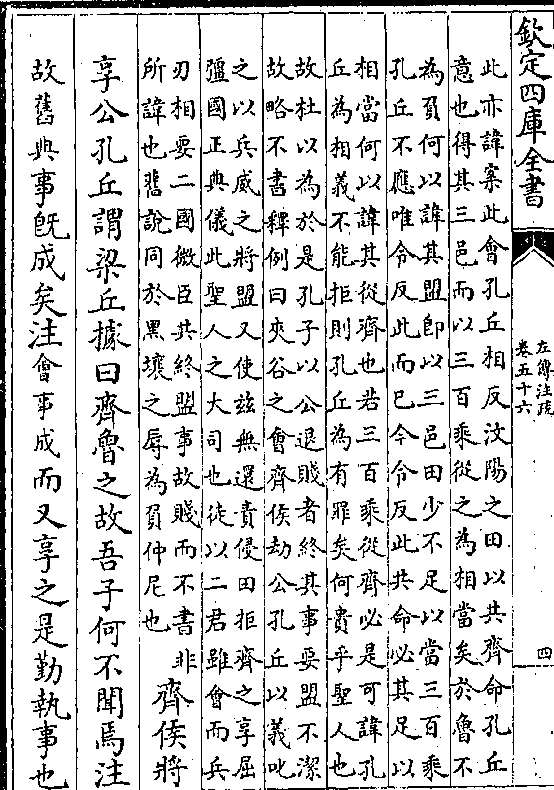 欽定四庫全書
左傳注疏
卷五十六
四
此亦諱案此會孔丘相反汶陽之田以共齊命孔丘
意也得其三邑而以三百乘從之為相當矣於魯不
為負何以諱其盟即以三邑田少不足以當三百乘
孔丘不應唯令反此而已今令反此共命必其足以
相當何以諱其從齊也若三百乘從齊必是可諱孔
丘為相義不能拒則孔丘為有罪矣何貴乎聖人也
故杜以為於是孔子以公退賤者終其事要盟不潔
故略不書釋例曰夾谷之會齊侯劫公孔丘以義叱
之以兵威之將盟又使茲無還責侵田拒齊之享屈
彊國正典儀此聖人之大司也徒以二君雖會而兵
刃相要二國微臣共終盟事故賤而不書非
所諱也舊說同於黑壤之辱為負仲尼也
齊侯將
享公孔丘謂梁丘據曰齊魯之故吾子何不聞焉注
故舊典事既成矣注會事成而又享之是勤執事也